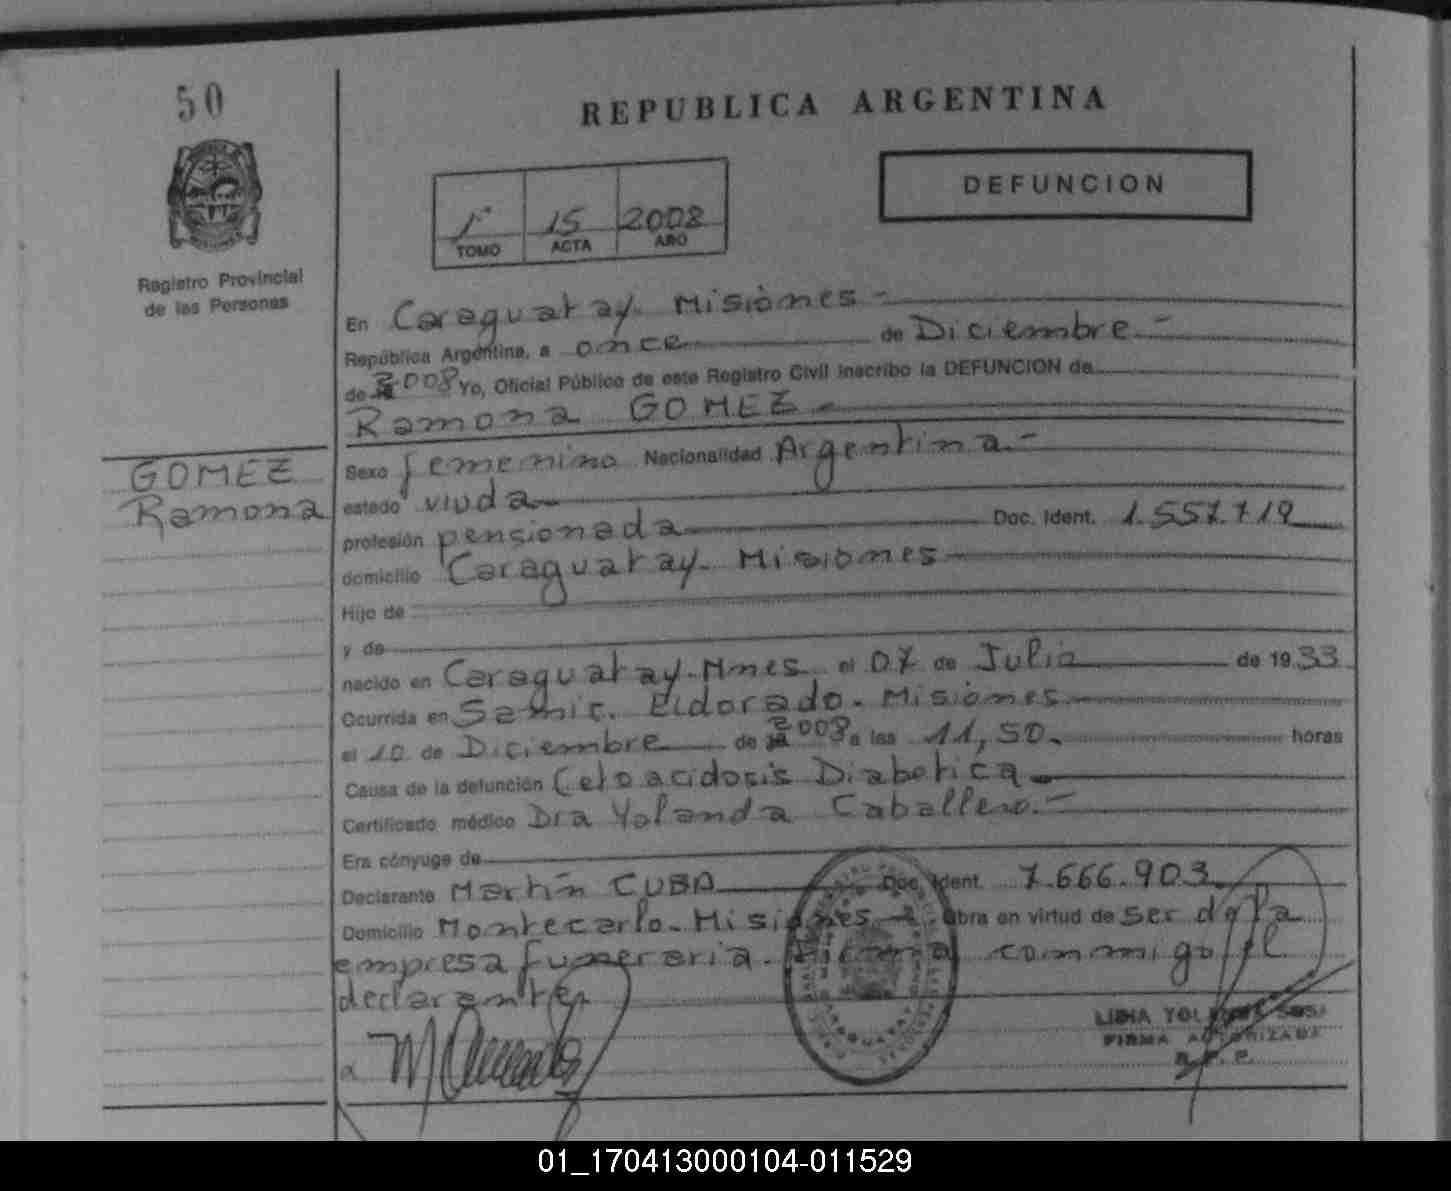 50
REPUBLICA ARGENTINA
DEFUNCION
1º 15 2008
TOMO ACTA AÑO
Registro Provincial
de las Personas
En Caraguatay. Misiones -
República Argentina, a once de Diciembre -
de 2008 Yo, Oficial Público de este Registro Civil inscribo la DEFUNCION de
Ramona GOMEZ -
GOMEZ
Ramona
Sexo femenino Nacionalidad Argentina -
estado viuda
profesión pensionada Doc. Ident. 1.557.719
domicilio Caraguatay. Misiones
Hijo de
y de
nacido en Caraguatay. Mnes el 07 de Julio de 1933
Ocurrida en Samic. Eldorado. Misiones
el 10 de Diciembre de 2008 a las 11,50. horas
Causa de la defunción Cetoacidosis Diabetica
Certificado médico Dra Yolanda Caballero. -
Era cónyuge de
Declarante Martín CUBA Doc. Ident. 7.666.903
Domicilio Montecarlo. Misiones Obra en virtud de ser de la
empresa funeraria. Firma conmigo el
declarante
FIRMA AUTORIZADA
R. P. P.
01_170413000104-011529